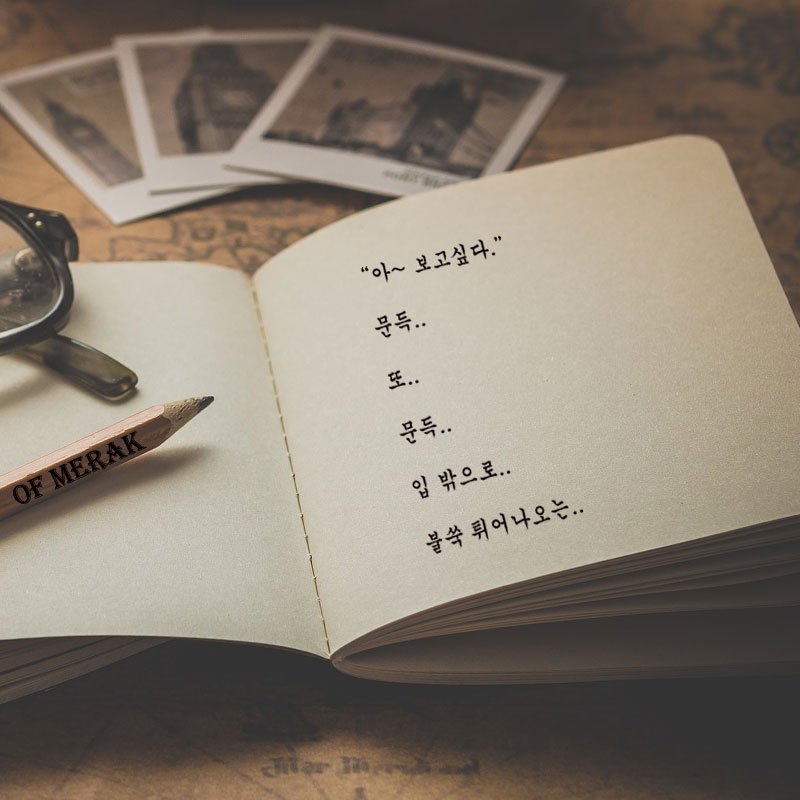 “아~ 보고싶다.”
문득..
또..
문득..
입 밖으로..
불쑥 튀어나오는..
OF MERAK